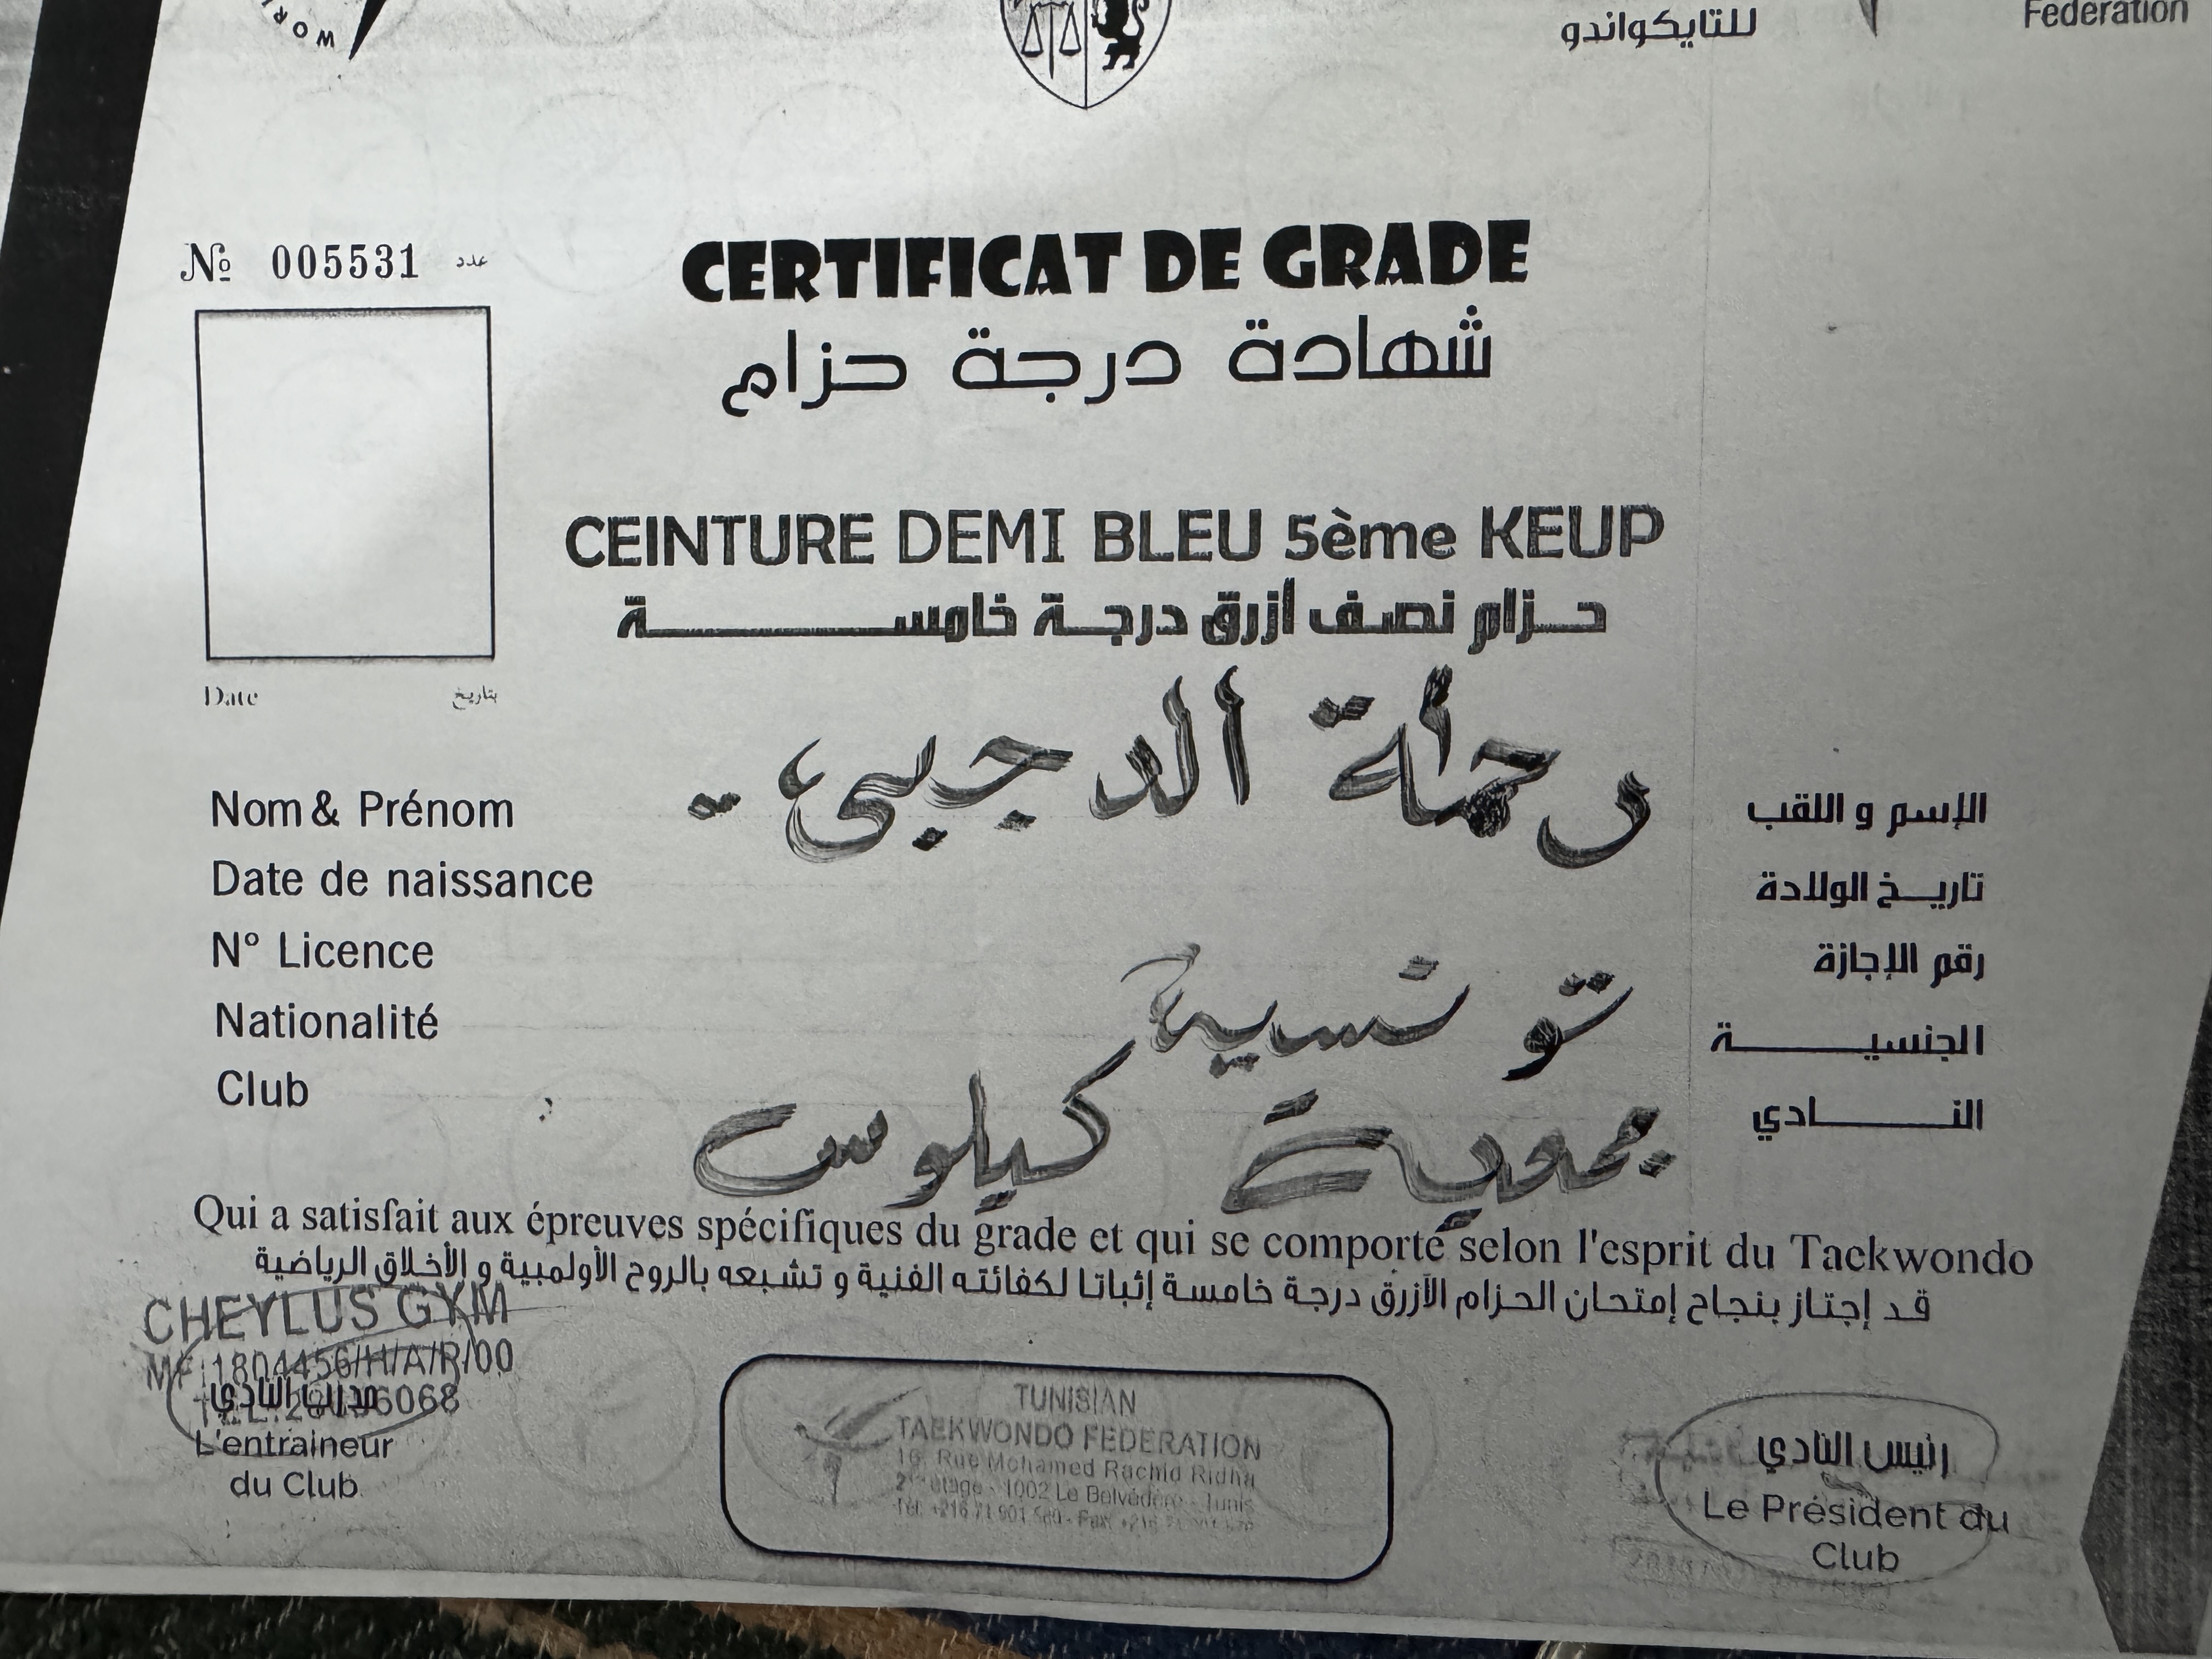 WORL
للتايكواندو
Federation
№ 005531 عدد
CERTIFICAT DE GRADE
شهادة درجة حزام
CEINTURE DEMI BLEU 5ème KEUP
حزام نصف أزرق درجة خامسة
Date بتاريخ
Nom & Prénom الدجبي الإسم و اللقب
Date de naissance تاريخ الولادة
N° Licence رقم الإجازة
Nationalité تونسية الجنسية
Club كيلوس النادي
Qui a satisfait aux épreuves spécifiques du grade et qui se comporte selon l'esprit du Taekwondo
قد إجتاز بنجاح إمتحان الحزام الأزرق درجة خامسة إثباتا لكفائته الفنية و تشبعه بالروح الأولمبية و الأخلاق الرياضية
CHEYLUS GYM
MF:1804456/H/A/P/00
مدرب النادي
L'entraineur
du Club
TUNISIAN
TAEKWONDO FEDERATION
16, Rue Mohamed Rachid Ridha
2ème étage - 1002 Le Belvédère - Tunis
Tél: +216 71 901 - Fax: +216
رئيس النادي
Le Président du
Club